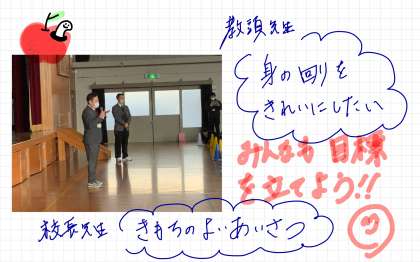 教頭先生
身の回りを
きれいにしたい
みんなも目標
を立てよう!!
校長先生
きもちのよいあいさつ